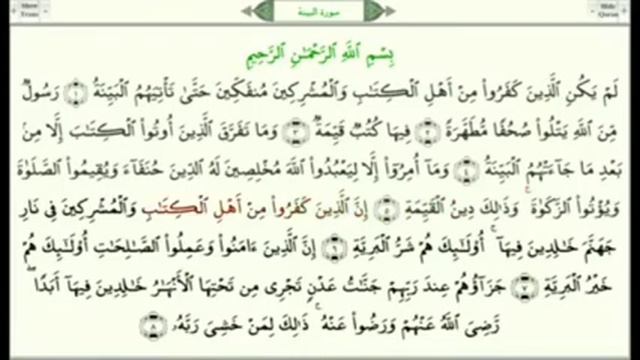 Show Trans
سورة البينة
Hide Quran
بِسْمِ اللَّهِ الرَّحْمَٰنِ الرَّحِيمِ
لَمْ يَكُنِ الَّذِينَ كَفَرُوا۟ مِنْ أَهْلِ الْكِتَـٰبِ وَالْمُشْرِكِينَ مُنفَكِّينَ حَتَّىٰ تَأْتِيَهُمُ الْبَيِّنَةُ ﴿١﴾ رَسُولٌ
مِّنَ اللَّهِ يَتْلُوا۟ صُحُفًا مُّطَهَّرَةً ﴿٢﴾ فِيهَا كُتُبٌ قَيِّمَةٌ ﴿٣﴾ وَمَا تَفَرَّقَ الَّذِينَ أُوتُوا۟ الْكِتَـٰبَ إِلَّا مِنۢ
بَعْدِ مَا جَاءَتْهُمُ الْبَيِّنَةُ ﴿٤﴾ وَمَا أُمِرُوا۟ إِلَّا لِيَعْبُدُوا۟ اللَّهَ مُخْلِصِينَ لَهُ الدِّينَ حُنَفَاءَ وَيُقِيمُوا۟ الصَّلَوٰةَ
وَيُؤْتُوا۟ الزَّكَوٰةَ ۚ وَذَٰلِكَ دِينُ الْقَيِّمَةِ ﴿٥﴾ إِنَّ الَّذِينَ كَفَرُوا۟ مِنْ أَهْلِ الْكِتَـٰبِ وَالْمُشْرِكِينَ فِى نَارِ
جَهَنَّمَ خَـٰلِدِينَ فِيهَا ۚ أُو۟لَـٰئِكَ هُمْ شَرُّ الْبَرِيَّةِ ﴿٦﴾ إِنَّ الَّذِينَ ءَامَنُوا۟ وَعَمِلُوا۟ الصَّـٰلِحَـٰتِ أُو۟لَـٰئِكَ هُمْ
خَيْرُ الْبَرِيَّةِ ﴿٧﴾ جَزَاؤُهُمْ عِندَ رَبِّهِمْ جَنَّـٰتُ عَدْنٍ تَجْرِى مِن تَحْتِهَا الْأَنْهَـٰرُ خَـٰلِدِينَ فِيهَا أَبَدًا ۖ
رَّضِىَ اللَّهُ عَنْهُمْ وَرَضُوا۟ عَنْهُ ۚ ذَٰلِكَ لِمَنْ خَشِىَ رَبَّهُۥ ﴿٨﴾